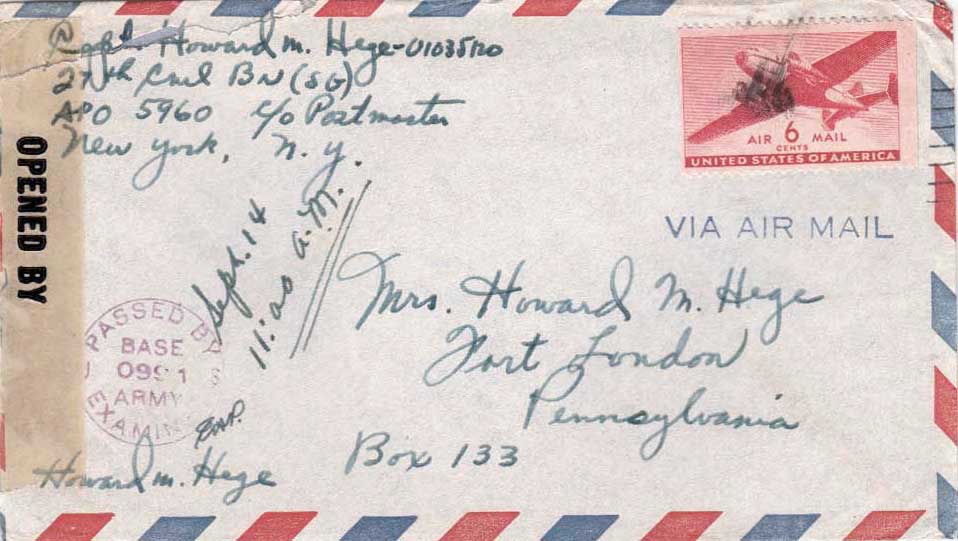 Capt. Howard M. Hege-01035120
27th Cml BN (SG)
APO 5960 c/o Postmaster
New York, N.Y.
AIR 6 MAIL
CENTS
UNITED STATES OF AMERICA
VIA AIR MAIL
OPENED BY
Sept. 14
11:20 A.M.
Mrs. Howard M. Hege
Fort Loudon
Pennsylvania
Box 133
PASSED B
BASE
ARMY
EXAMIN
Howard M. Hege